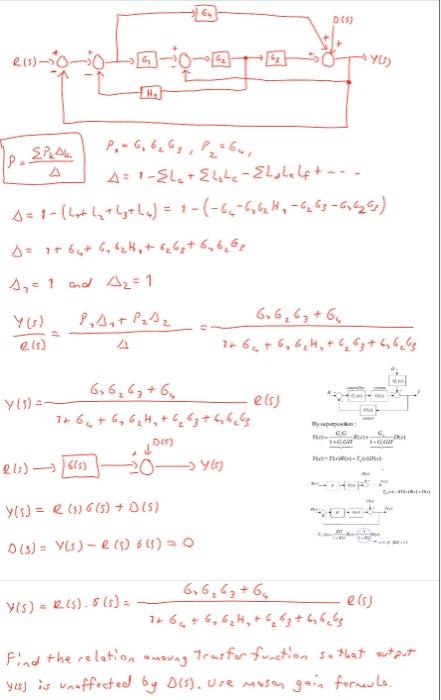 G₄
D(s)
R(s) + + G₁ + G₂ G₃ + + + Y(s)
- - -
H₂
P = ΣPₖΔₖ / Δ
P₁ = G₁G₂G₃, P₂ = G₄,
Δ = 1 - ΣLₐ + ΣL_bL_c - ΣL_dL_eL_f + - - -
Δ = 1 - (L₁+L₂+L₃+L₄) = 1 - (-G₄-G₁G₂H₁-G₂G₃-G₁G₂G₃)
Δ = 1 + G₄ + G₁G₂H₁ + G₂G₃ + G₁G₂G₃
Δ₁ = 1 and Δ₂ = 1
Y(s) / R(s) = P₁Δ₁ + P₂Δ₂ / Δ = G₁G₂G₃ + G₄ / 1 + G₄ + G₁G₂H₁ + G₂G₃ + G₁G₂G₃
Y(s) = G₁G₂G₃ + G₄ / 1 + G₄ + G₁G₂H₁ + G₂G₃ + G₁G₂G₃ R(s)
By superposition:
D(s)
R(s) G(s) Y(s)
Y(s) = R(s) G(s) + D(s)
D(s) = Y(s) - R(s) G(s) = 0
Y(s) = R(s). G(s) = G₁G₂G₃ + G₄ / 1 + G₄ + G₁G₂H₁ + G₂G₃ + G₁G₂G₃ R(s)
Find the relation amoung Trasfer function so that output
Y(s) is unaffected by D(s). Use mason gain formula.